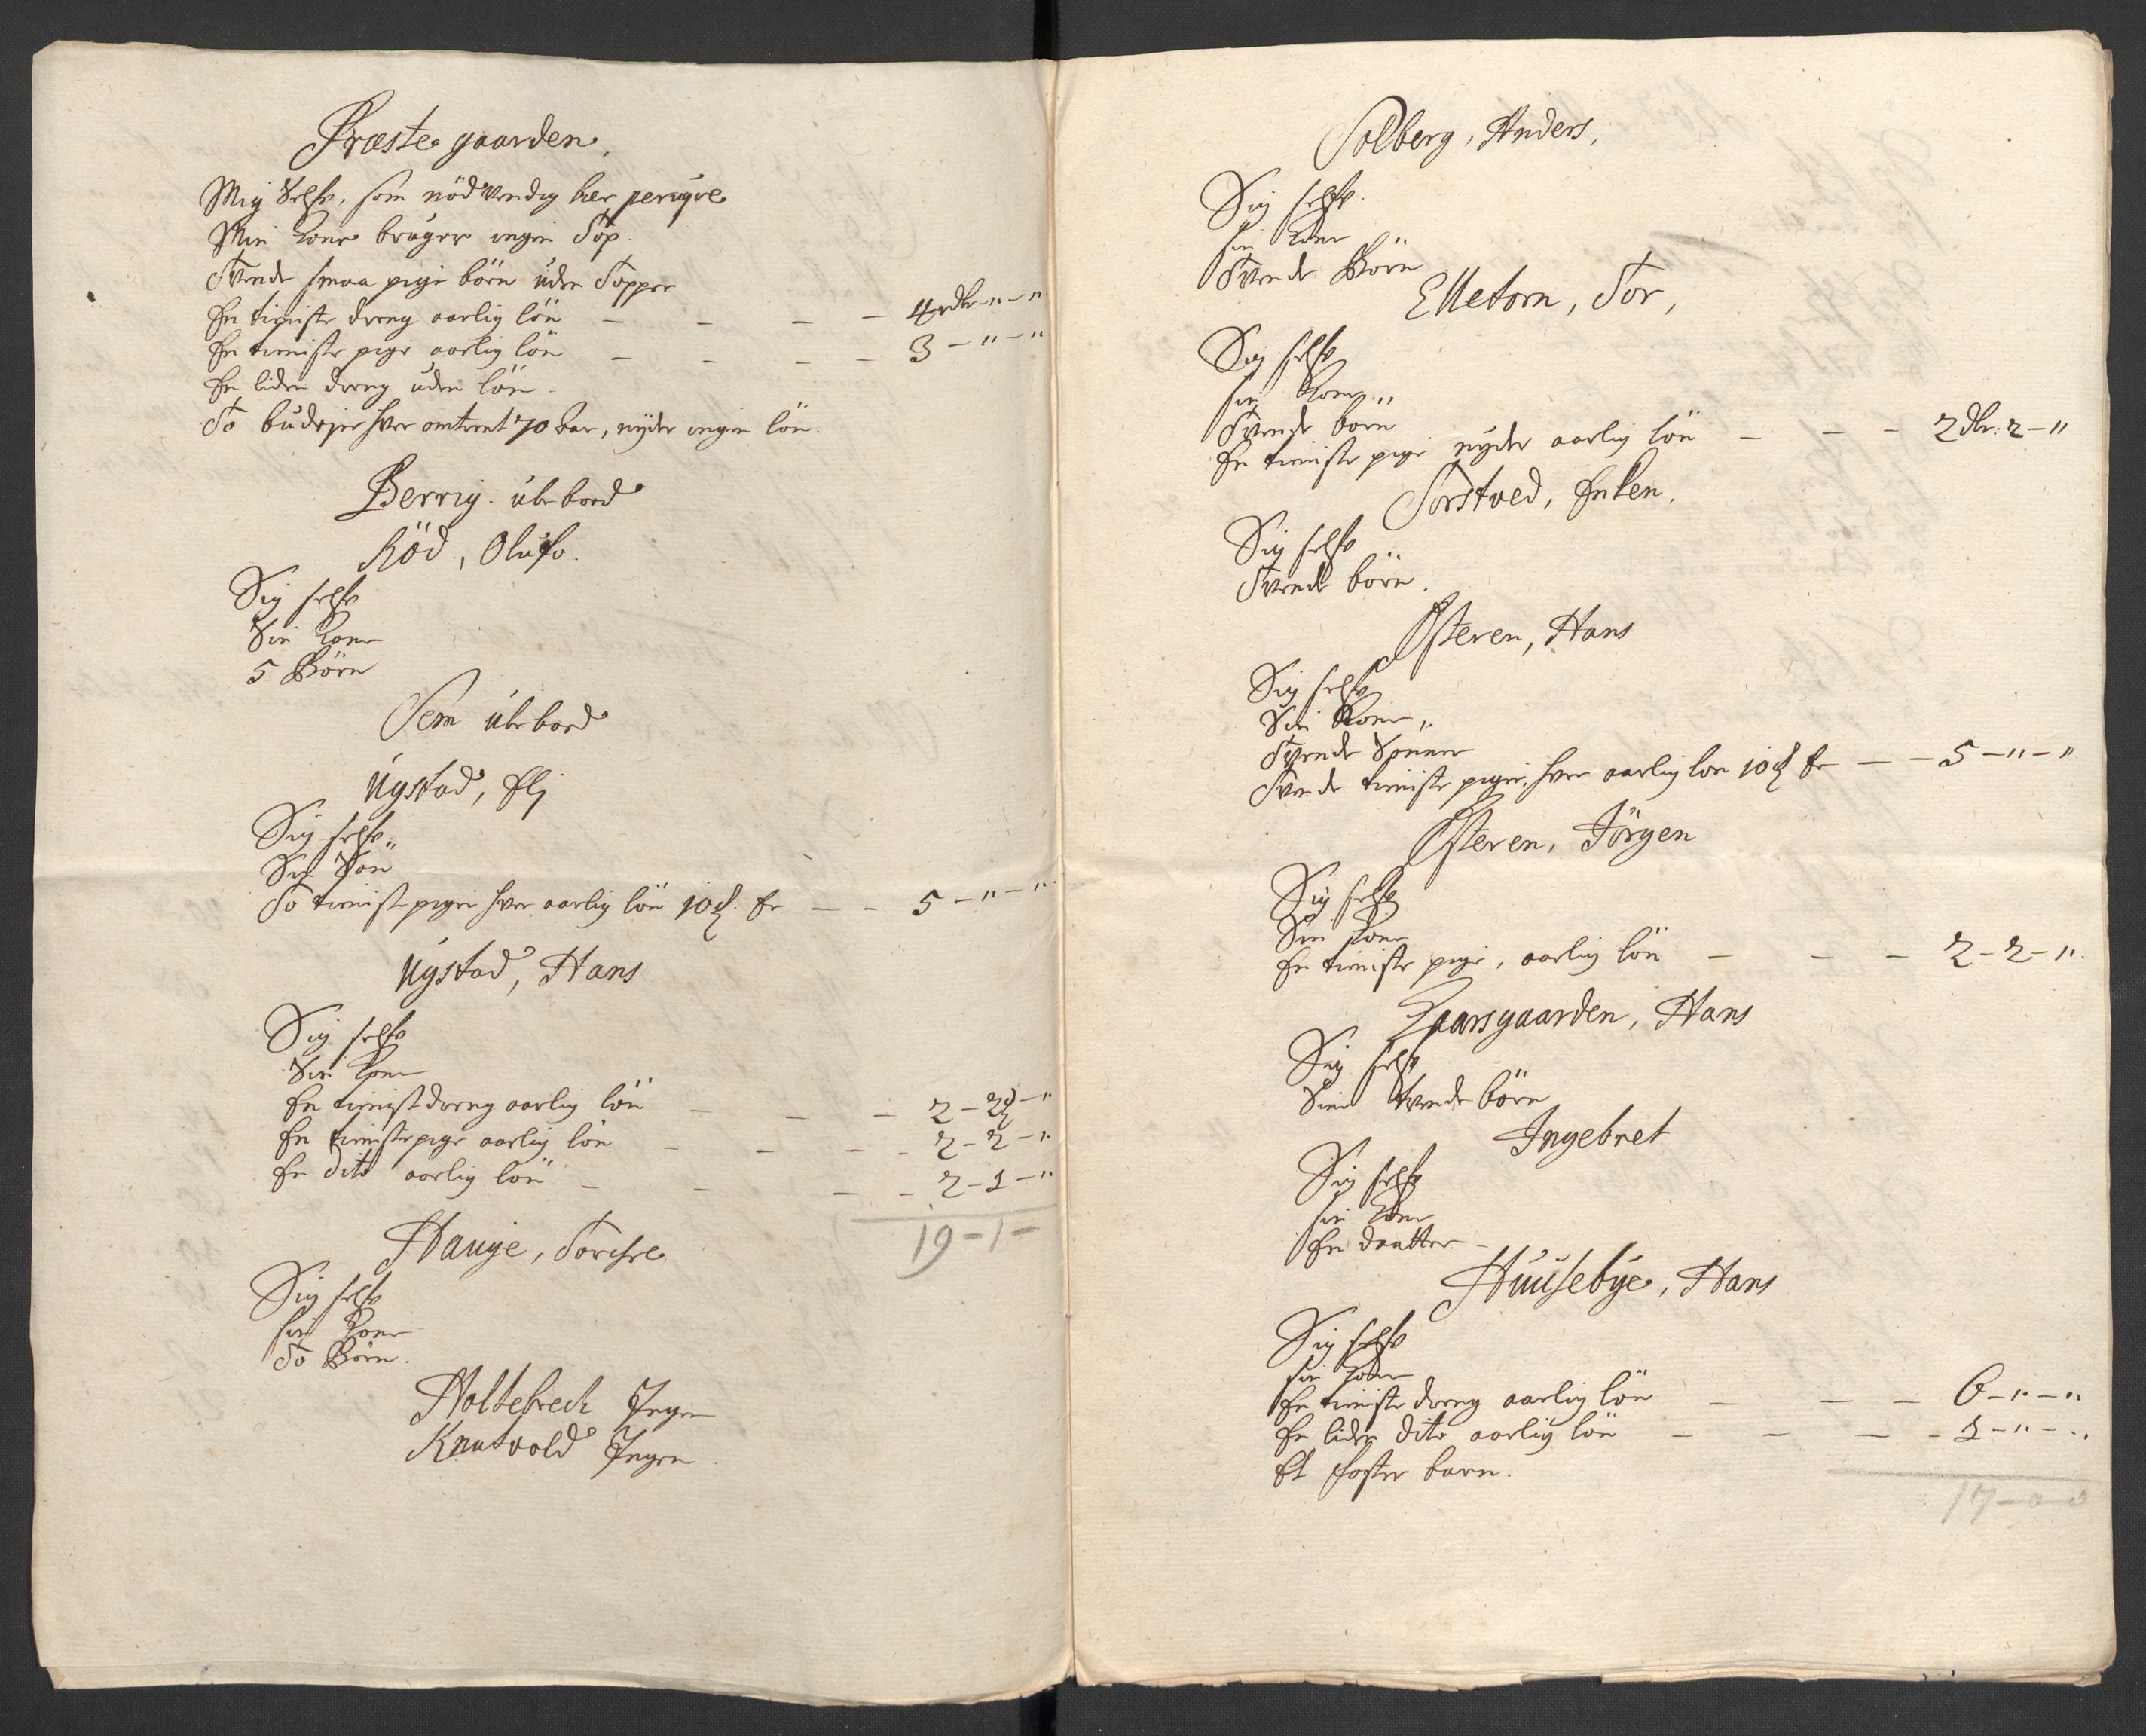 Præste gaarden,
Mig Selfv, som nödvendig bær peruqve
Min Kone bruger ingen Top.
Tvende smaa pige börn uden Topper
En tieniste dreng aarlig lön - - - - 4 rdlr - " - "
En tieniste pige aarlig lön - - - - 3 - " - "
En liden dreng uden lön
To budejer hver omtrent 70 aar, nyder ingen lön.
Berrig. ubeboed
Röd, Oluf
Sig selfv
Sin Kone
5 Börn
Sem ubeboed
Ugstad, Eli
Sig selfv
Sin Son
To tieniste piger hver aarlig lön 10 Er - - 5 - " - "
Ugstad, Hans
Sig selfv
Sin Kone
En tieniste dreng aarlig lön - - - 2 - 2 - "
En tieniste pige aarlig lön - - - - 2 - 2 - "
En dito aarlig lön - - - - 2 - 1 - "
19 - 1 -
Hauge,
Sig selfv
sin Kone
To Börn.
Holtebreck Ingen
Knutvold Ingen
Solberg, Anders,
Sig selfv
sin Kone
Tvende Börn
Elletorn, Tor,
Sig selfv
sin Kone
Tvende börn
En tieniste pige nyder aarlig lön - - - 2 dlr: 2 - "
Torstved, Enken,
Sig selfv
Tvende börn.
Österen, Hans
Sig selfv
Sin Kone
Tvende Sönner
Tvende tieniste piger, hver aarlig lön 10 Er - - 5 - " - "
Österen, Jörgen
Sig selfv
Sin Kone
En tieniste pige, aarlig lön - - - 2 - 2 - "
Laarsgaarden, Hans
Sig selfv
Sine tvende börn
Ingebret
Sig selfv
sin Kone
En daatter
Huusebye, Hans
Sig selfv
sin Kone
En tieniste dreng aarlig lön - - - 6 - " - "
En liden dito aarlig lön - - - - 1 - " - "
Et foster barn.
17 - 0 0